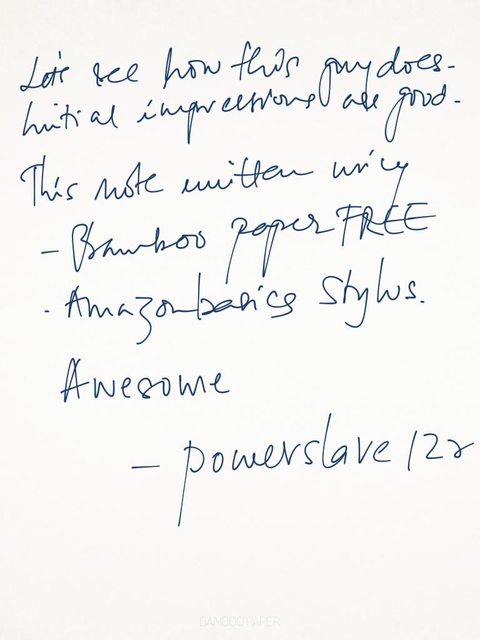 Let's see how this guy does.
Initial impressions are good.
This note written using
- Bamboo paper FREE
- Amazonbasics Stylus.
Awesome
- powerslave 12r
BAMBOO PAPER